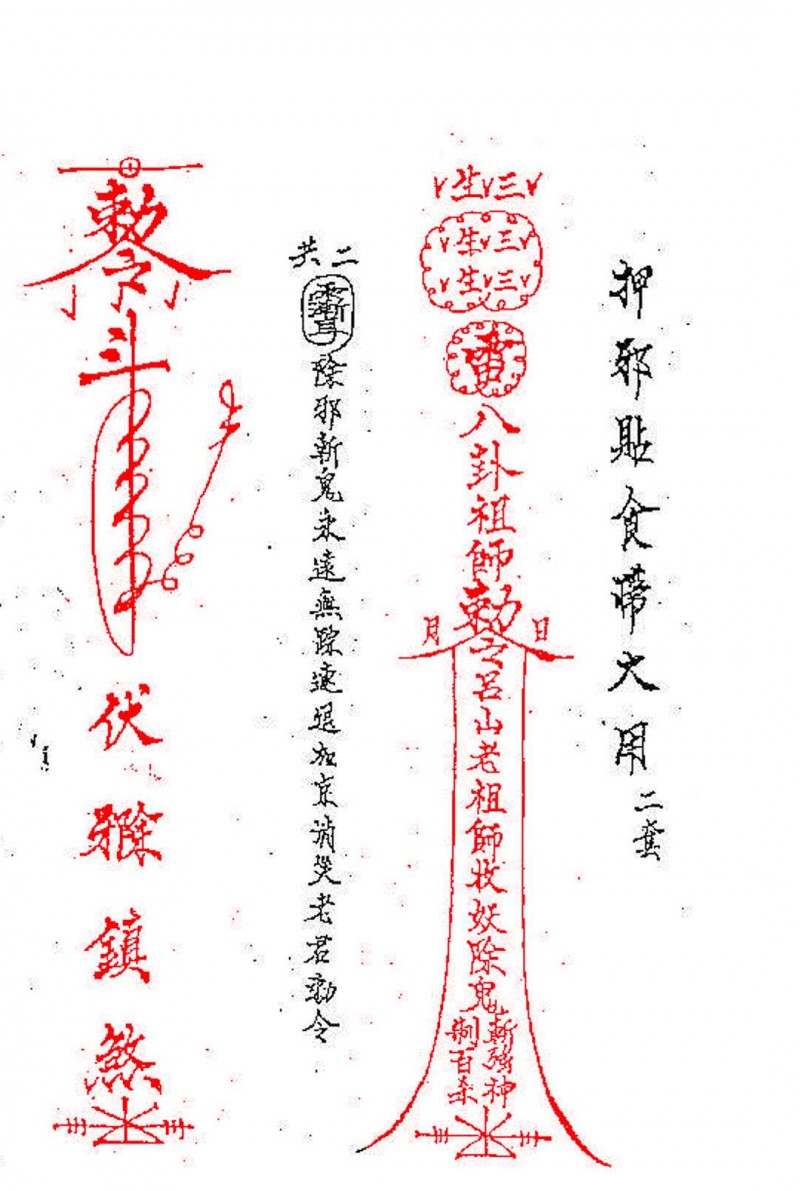 押邪貼食帶大用二套
生三
生三
生三
雷
八卦祖師
勅令
日
月
呂山老祖師收妖除鬼
斬強神
制百煞
共二
除邪斬鬼永遠無踪速退加京消災老君勅令
勅令
斗
伏
鎮
煞